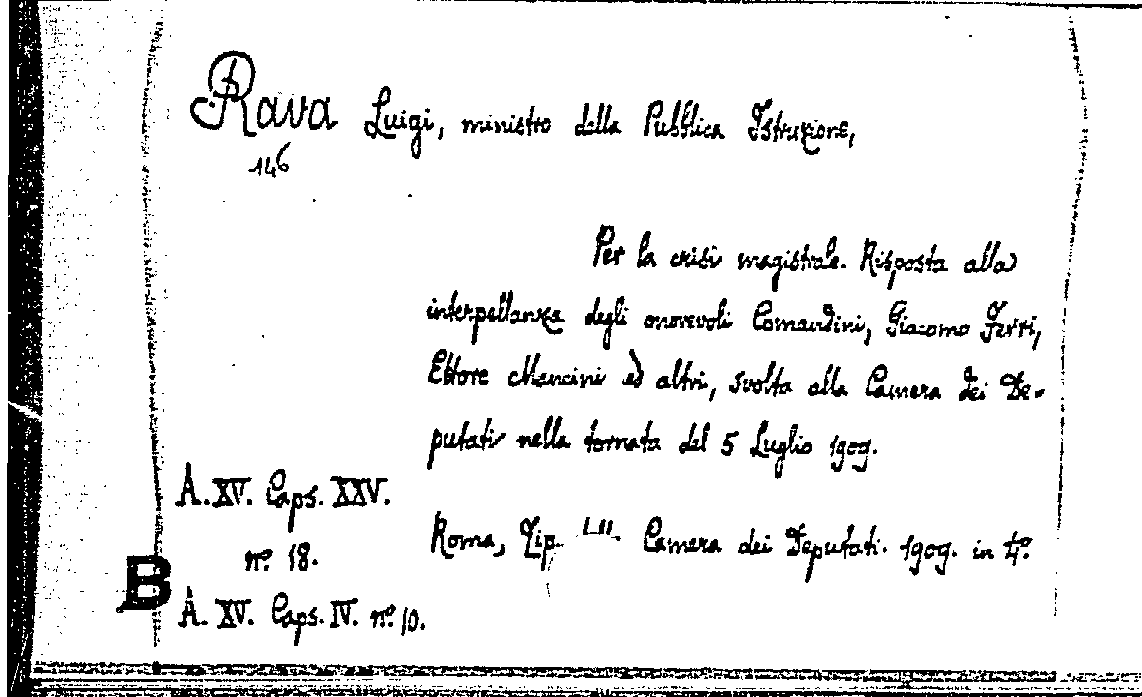 Rava Luigi, ministro della Pubblica Istruzione,
146
Per la crisi magistrale. Risposta alla
interpellanza degli onorevoli Comandini, Giacomo Ferri,
Ettore Mancini ed altri, svolta alla Camera dei De-
putati nella tornata del 5 Luglio 1909.
A. XV. Caps. XXV.
nº 18.
Roma, Tip. Camera dei Deputati. 1909. in 4º.
B
A. XV. Caps. IV. nº 10.